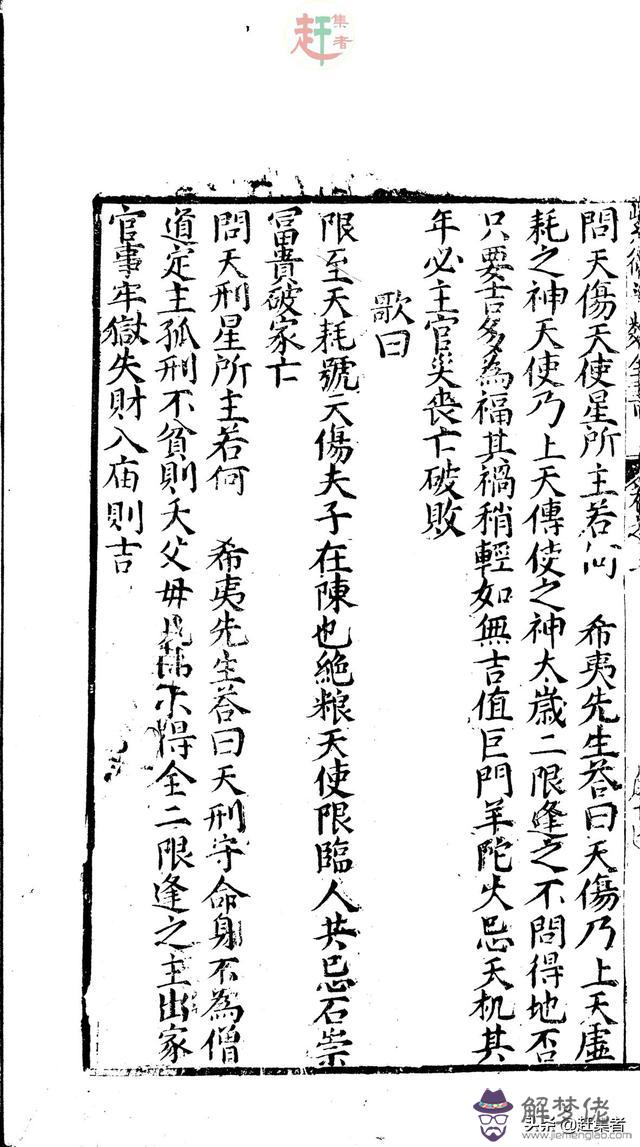 趕集者
問天傷天使星所主若何 希夷先生答曰天傷乃上天虛
耗之神天使乃上天傳使之神太歲二限逢之不問得地否
只要吉多為福其禍稍輕如無吉值巨門羊陀火忌天机其
年必主官災喪亡破敗
歌曰
限至天耗號天傷夫子在陳也絕粮天使限臨人共忌石崇
冨貴破家亡
問天刑星所主若何 希夷先生答曰天刑守命身不為僧
道定主孤刑不貧則夭父毋兄弟不得全二限逢之主出家
官事牢獄失財入庙則吉
解梦佬
www.jiemenglao.com
头杀@赶集者